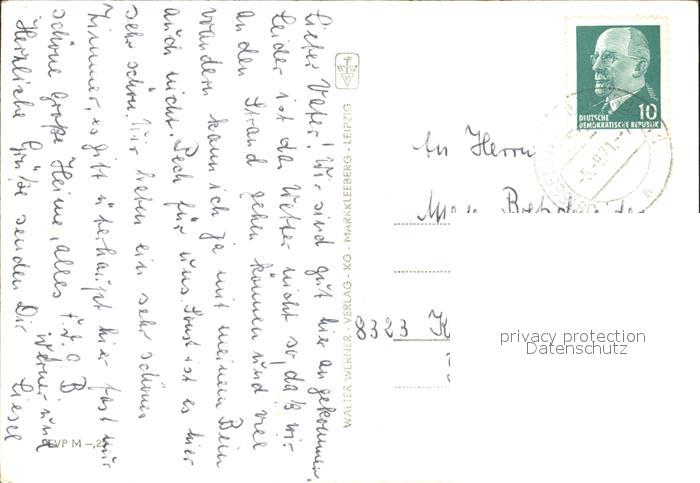 Lieber Vater! Wir sind gut hier angekommen.
Leider ist das Wetter nicht so, daß wir
an den Strand gehen können und viel
wandern kann ich ja mit meinem Bein
auch nicht. Pech für uns. Sonst ist es hier
sehr schön. Wir haben ein sehr schönes
Zimmer, es gibt überhaupt hier fast nur
schöne große Heime, alles
Herzliche Grüße senden Dir Werner und
Liesel
EVP M -,2
WALTER WERNER - VERLAG - KG - MARKKLEEBERG - LEIPZIG
DEUTSCHE
DEMOKRATISCHE REPUBLIK
10
An Herrn
8323
privacy protection
Datenschutz